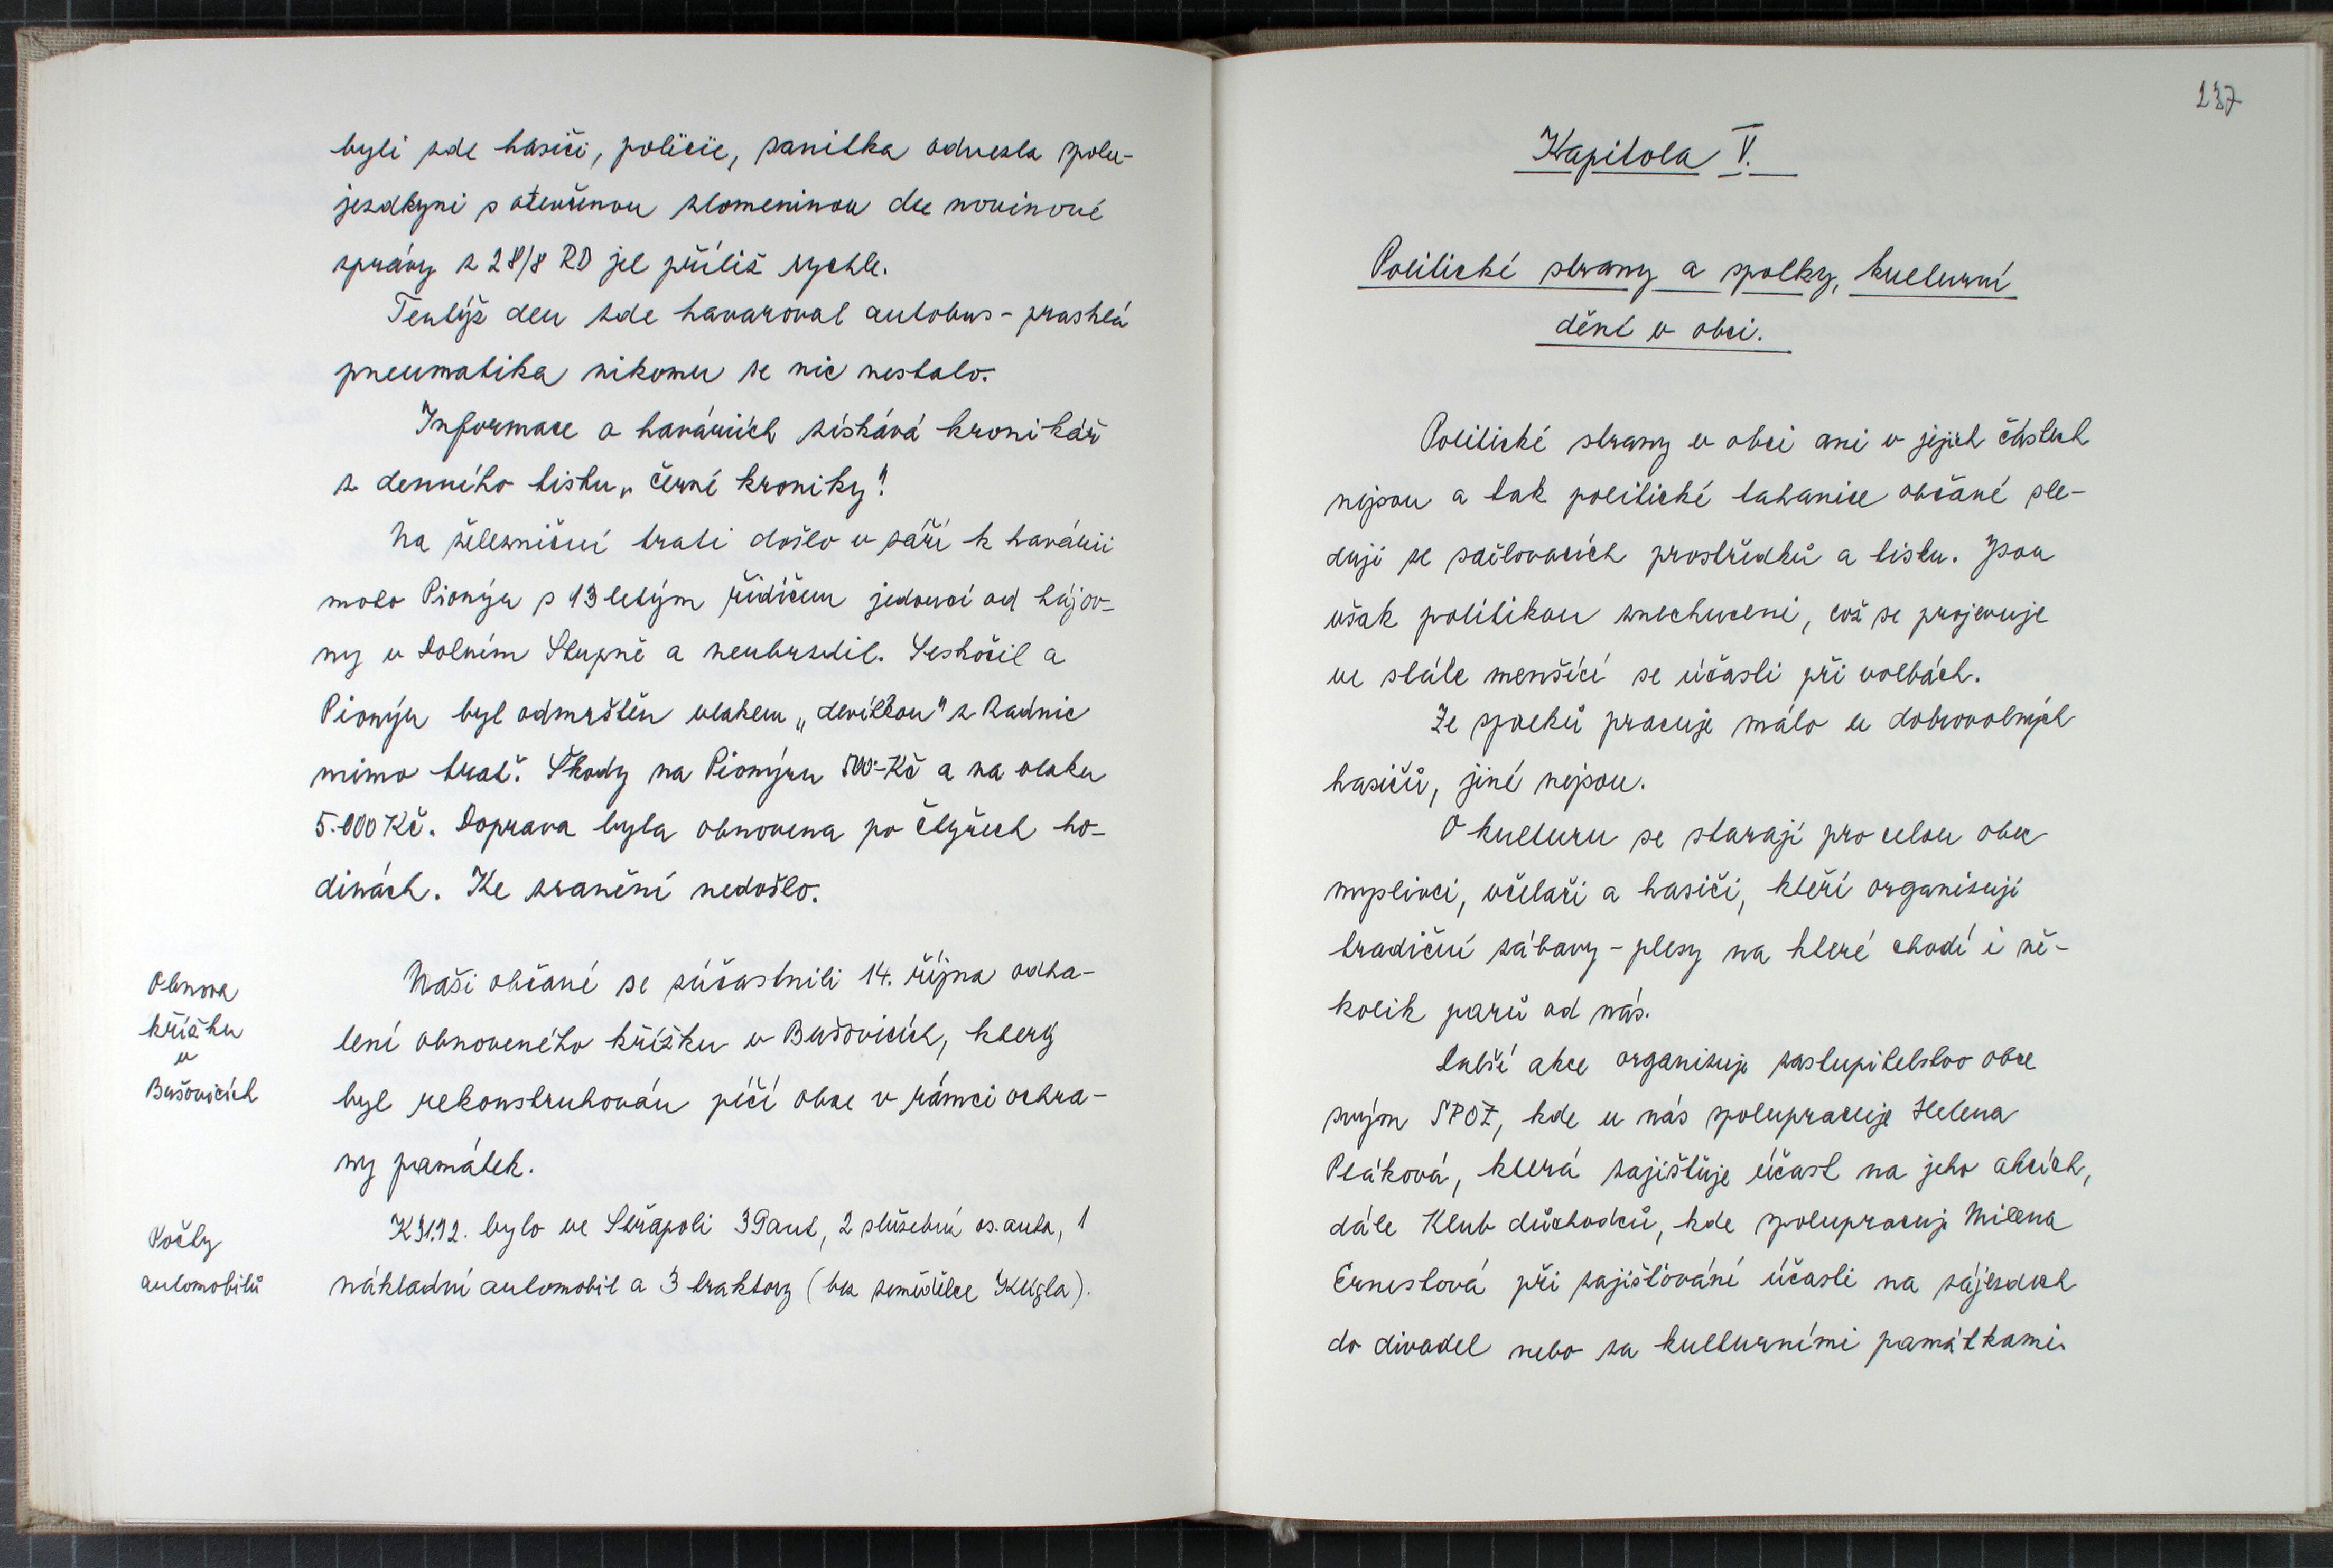 byli zde hasiči, policie, sanitka odvezla spolu-
jezdkyni s otevřenou zlomeninou dle novinové
zprávy z 28/8 RD jel příliš rychle.
Tentýž den zde havaroval autobus - prasklá
pneumatika nikomu se nic nestalo.
Informace o haváriích získává kronikář
z denního tisku „černé kroniky"
Na železniční trati došlo v září k havárii
moto Pionýr s 13 letým řidičem jedoucí od hájov-
ny v Dolním Stupně a neubrzdil. Seskočil a
Pionýr byl odmrštěn vlakem „devítkou" z Radnic
mimo trať. Škody na Pionýru 500.-Kč a na vlaku
5.000 Kč. Doprava byla obnovena po čtyřech ho-
dinách. Ke zranění nedošlo.
Obnova
křížku
v
Bušovicích
Naši občané se zúčastnili 14. října odha-
lení obnoveného křížku v Bušovicích, který
byl rekonstruhován péčí obce v rámci ochra-
ny památek.
Počty
automobilů
K 31.12. bylo ve Střapoli 39 aut, 2 služební os. auta, 1
nákladní automobil a 3 traktory (bez zemědělce Kůgla).
237
Kapitola V.
Politické strany a spolky, kulturní
dění v obci.
Politické strany v obci ani v jejich částech
nejsou a tak politické tahanice občané sle-
dují ze sdělovacích prostředků a tisku. Jsou
však politikou znechuceni, což se projevuje
ve stále menšící se účasti při volbách.
Ze spolků pracuje málo u dobrovolných
hasičů, jiné nejsou.
O kulturu se starají pro celou obec
myslivci, včelaři a hasiči, kteří organizují
tradiční zábavy - plesy na které chodí i ně-
kolik parů od nás.
Další akce organizuje zastupitelstvo obce
svým SPOZ, kde u nás spolupracuje Helena
Ptáková, která zajišťuje účast na jeho akcích,
dále Klub důchodců, kde spolupracuje Milena
Ernestová při zajišťování účasti na zájezdech
do divadel nebo za kulturními památkami.